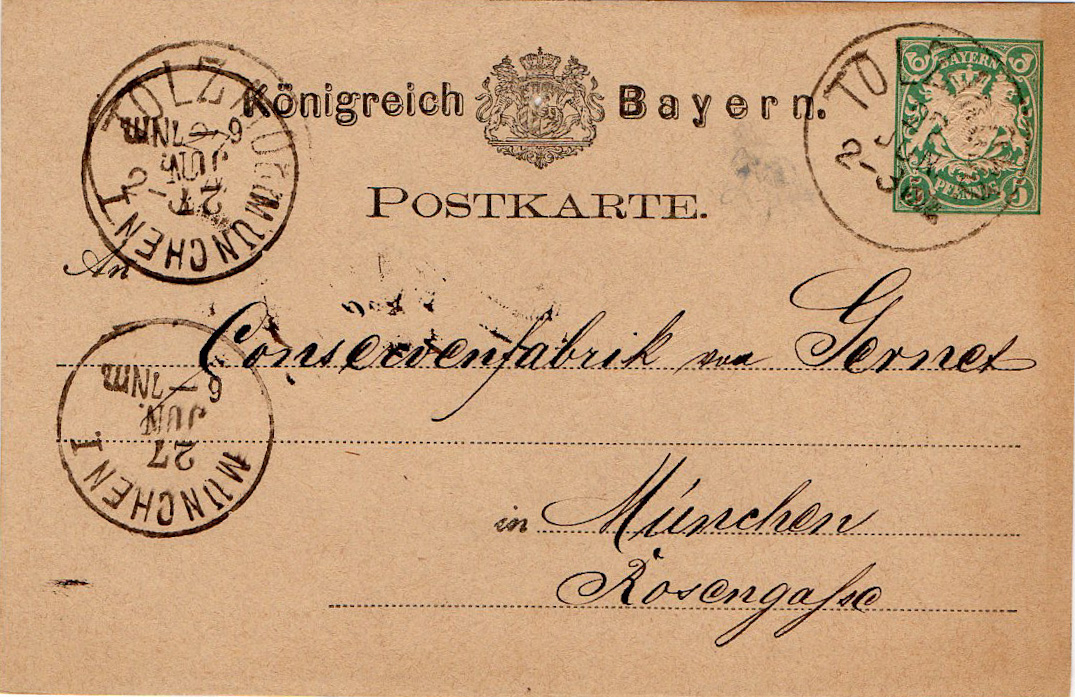 Königreich Bayern.
POSTKARTE.
BAYERN
PFENNIG
5 5
TÖLZ
JUN
2-3
TOLZ
JUN
2-
MÜNCHEN I
27
6-7 NM
An
Conservenfabrik von Gernet
in München
Rosengasse
MÜNCHEN I
27
JUN.
6-7 NM